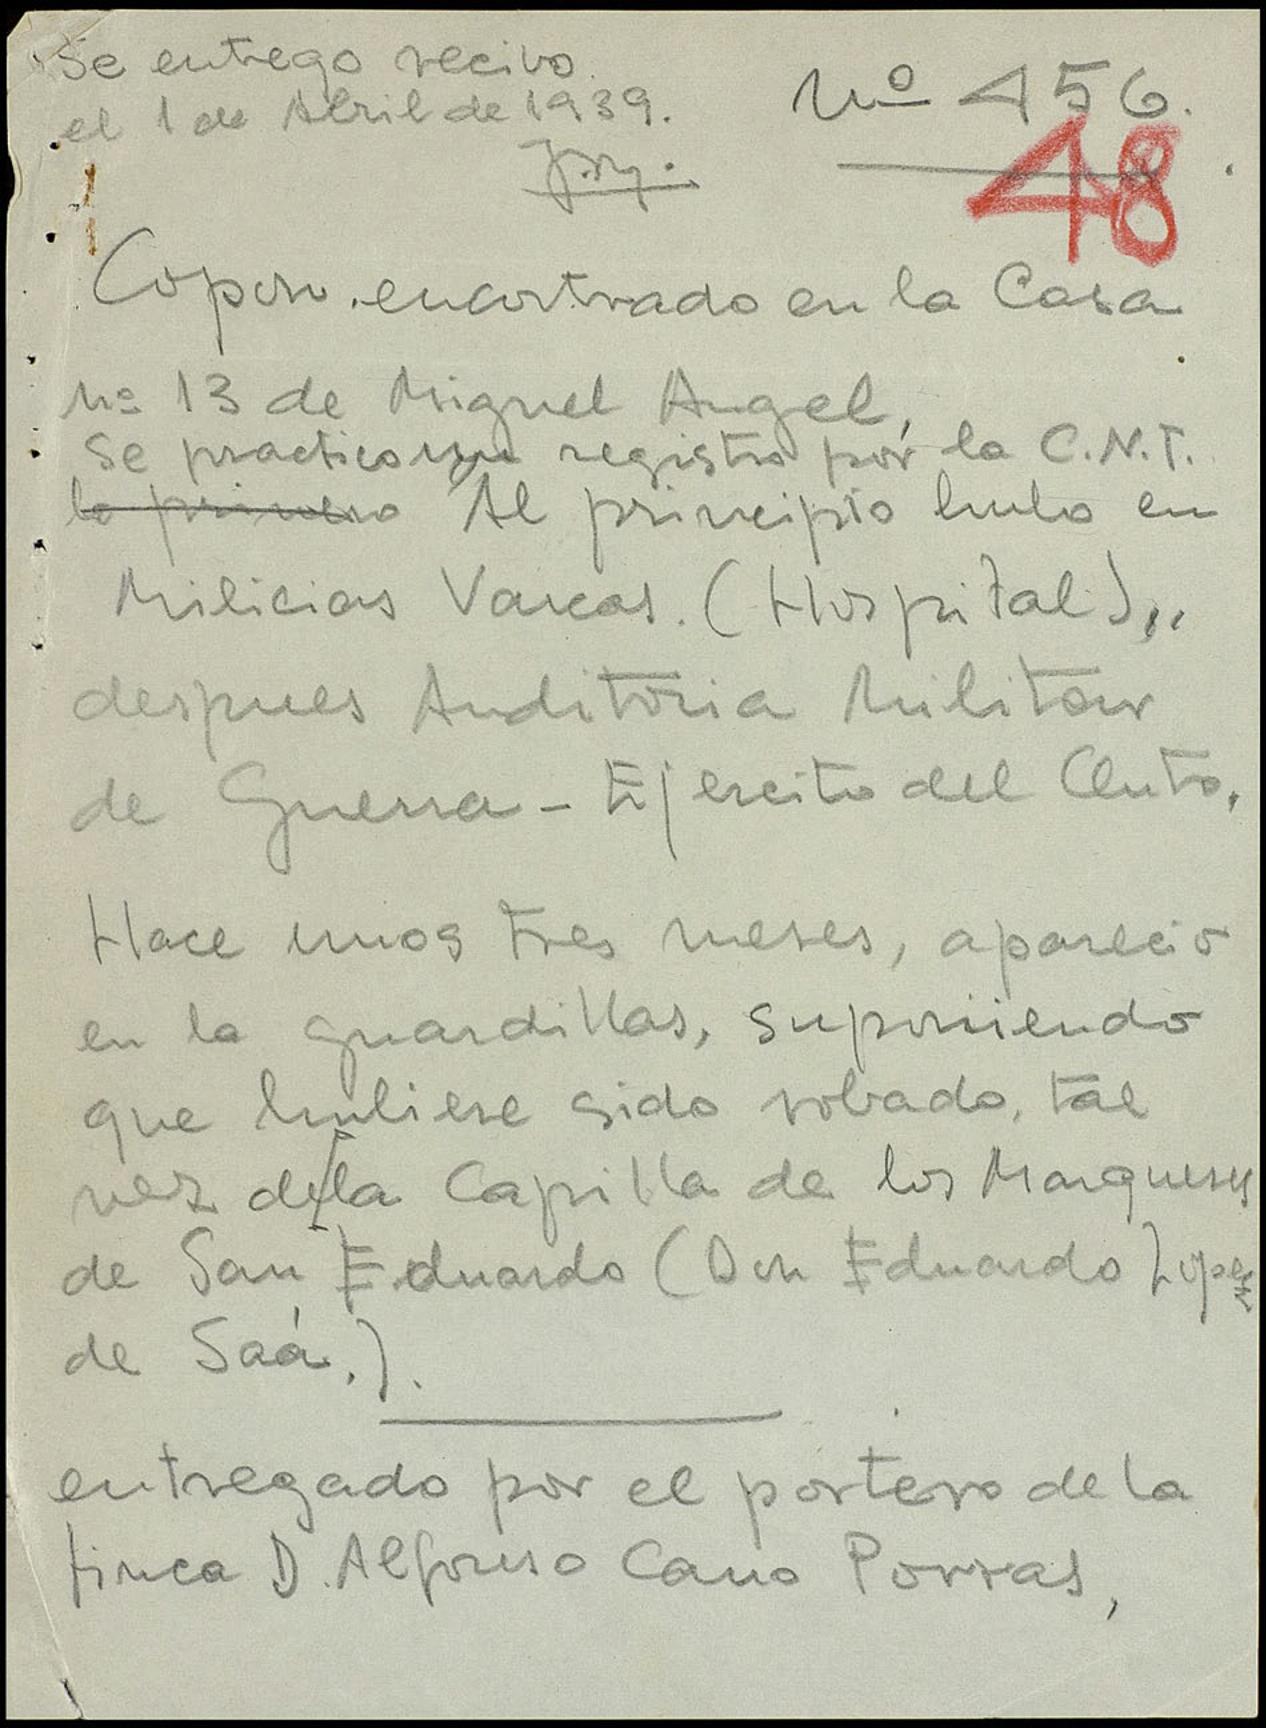 Se entrego recivo
el 1 de Abril de 1939.
nº 456.
48
Copon encontrado en la Casa
nº 13 de Miguel Angel,
Se practico un registro por la C.N.T.
lo primero Al principio hubo en
Milicias Vascas. (Hospital),,
despues Auditoria Militar
de Guerra - Ejercito del Cento.
Hace unos tres meses, aparecio
en la guardillas, suponiendo
que hubiese sido robado, tal
vez de la Capilla de los Marqueses
de San Eduardo (Don Eduardo Lopez
de Saá.).
entregado por el portero de la
finca D. Alfonso Cano Porras,